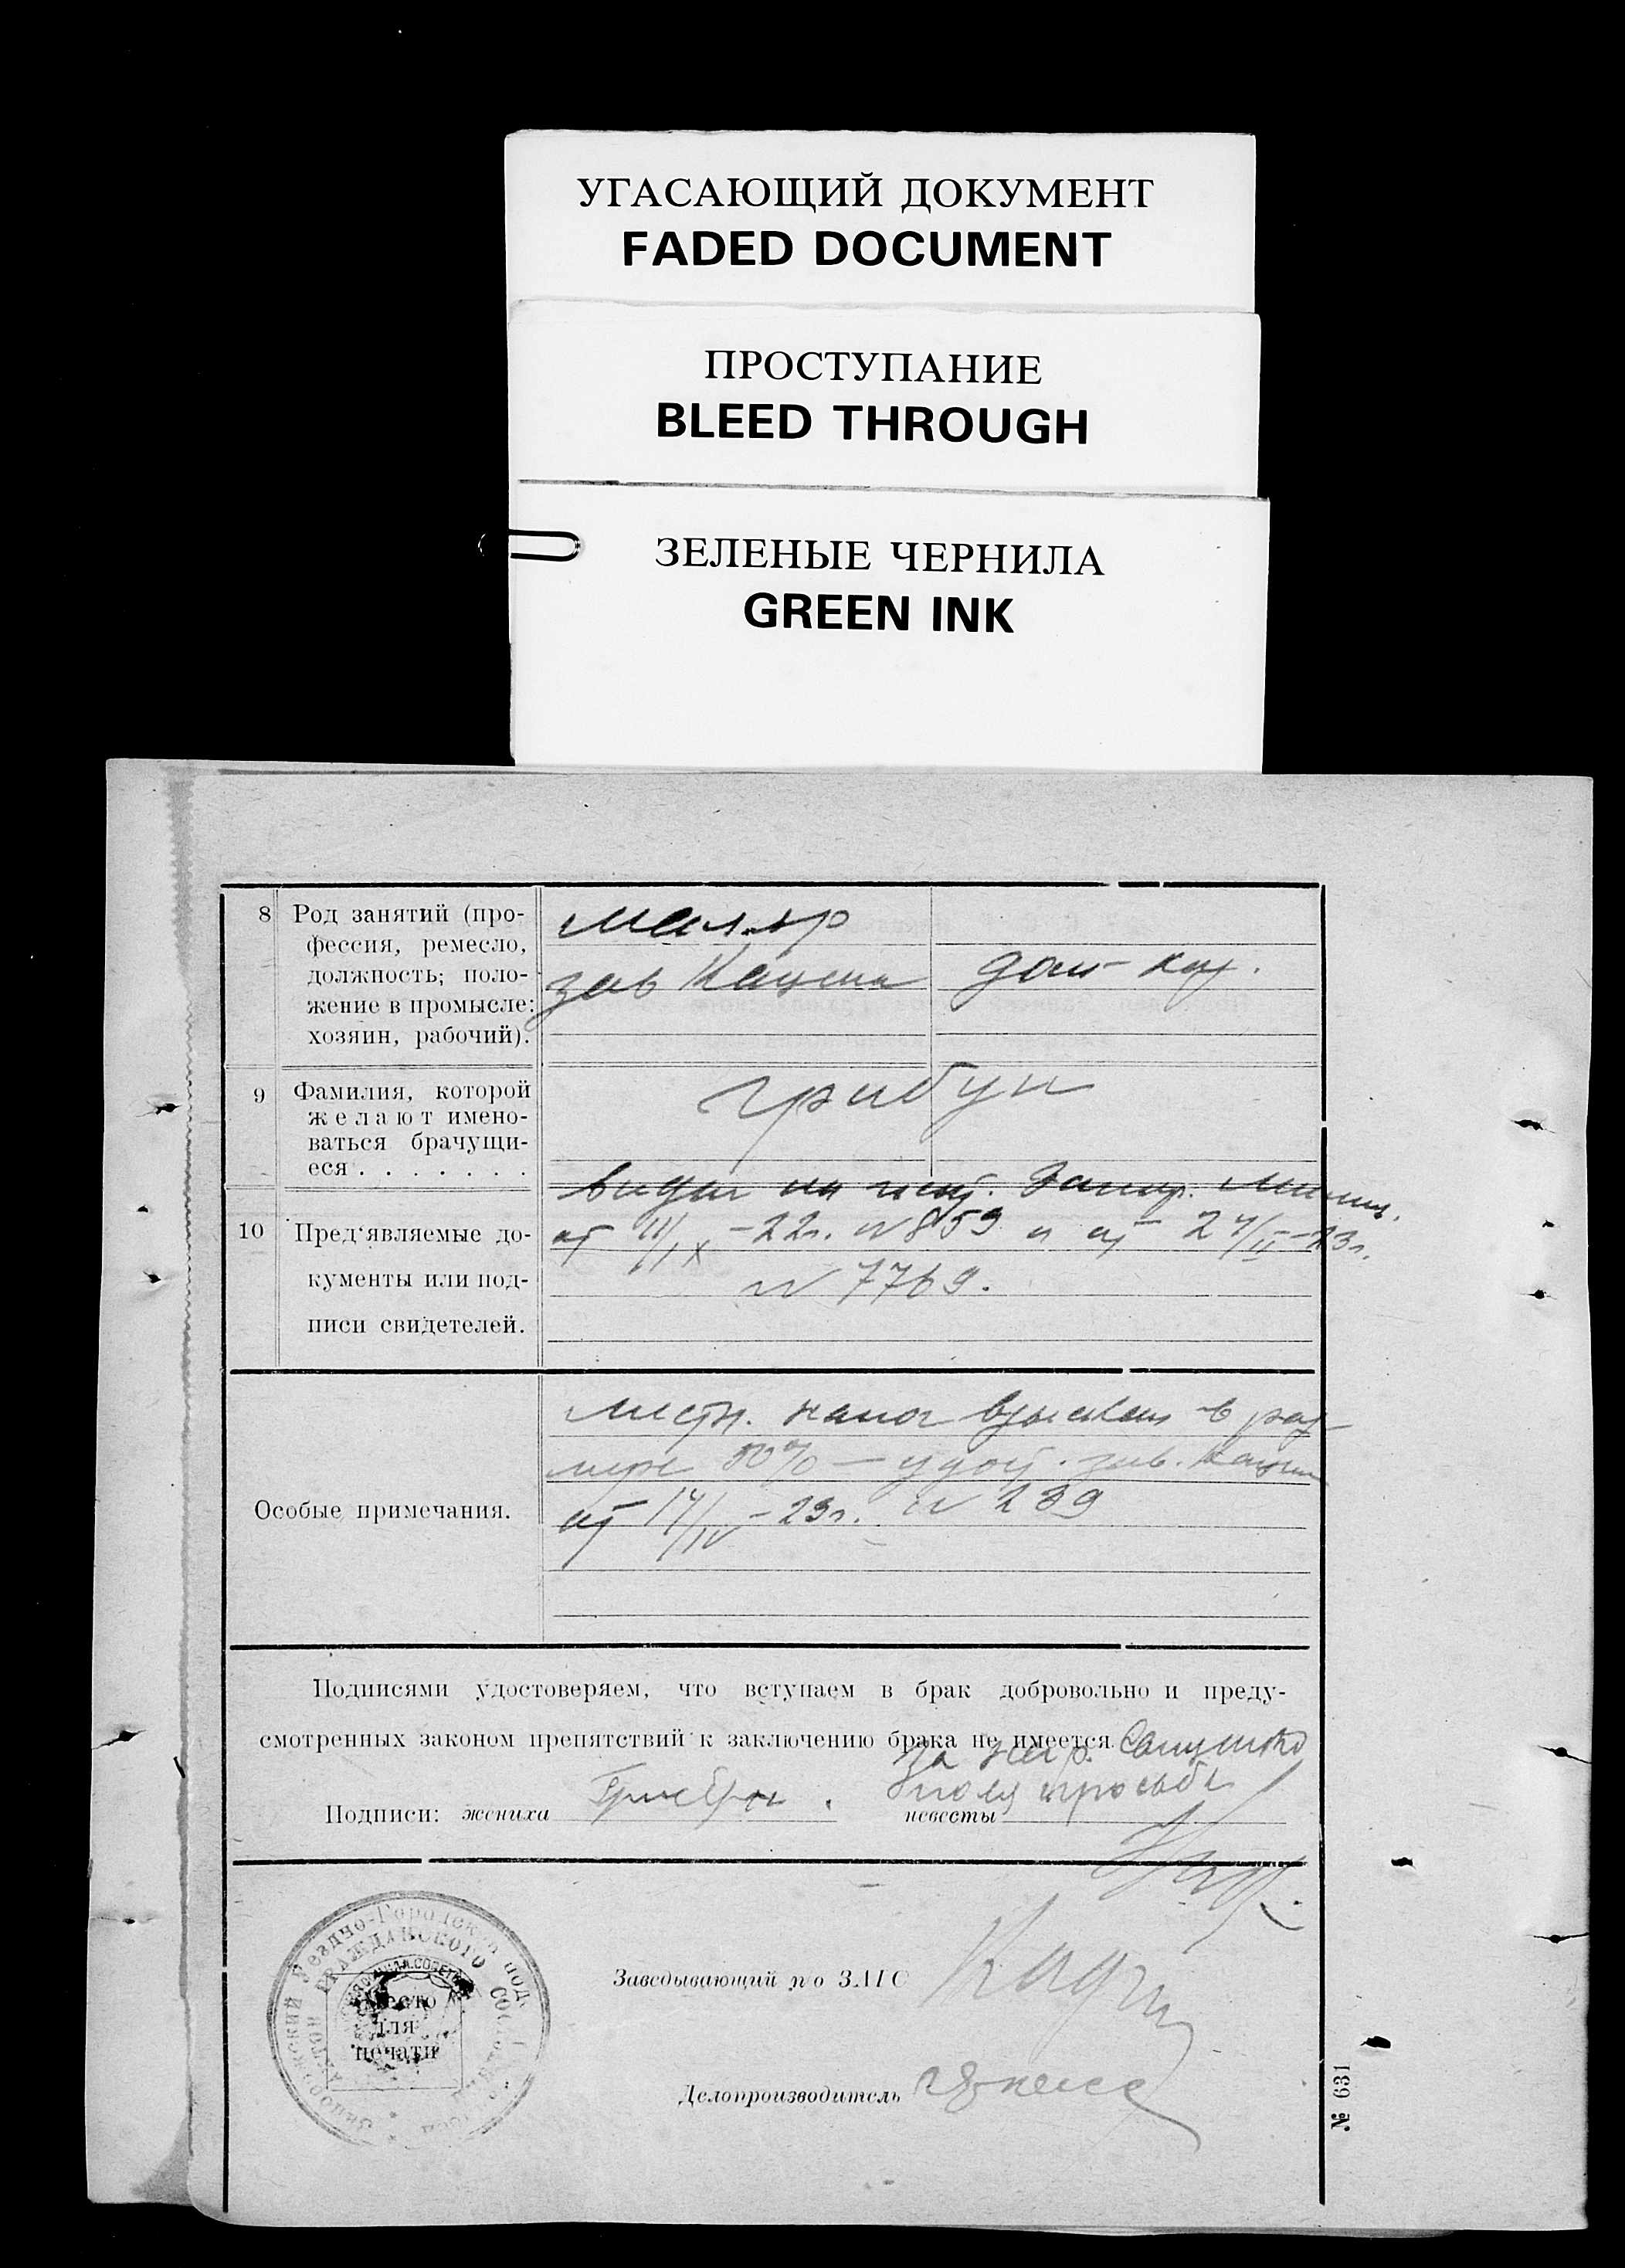 УГАСАЮЩИЙ ДОКУМЕНТ
FADED DOCUMENT
ПРОСТУПАНИЕ
BLEED THROUGH
ЗЕЛЕНЫЕ ЧЕРНИЛА
GREEN INK
8 Род занятий (про-
фессия, ремесло,
должность; поло-
жение в промысле:
хозяин, рабочий).
маляр
зав
дом
9 Фамилия, которой
желают имено-
ваться брачущи-
еся . . . . . . .
Грибун
10 Пред'являемые до-
кументы или под-
писи свидетелей.
от 11/IX - 22г. N 859 и от 24/II - 23г.
N 7769.
Особые примечания.
местн. налог взыскан в раз-
мере 50% — удост. зав.
от 14/IV - 23г. N 239
Подписями удостоверяем, что вступаем в брак добровольно и преду-
смотренных законом препятствий к заключению брака не имеется.
за негр.
просьбе
Подписи: жениха
невесты
Место
для
печати
Заведывающий по ЗАГС
Делопроизводитель
№ 631